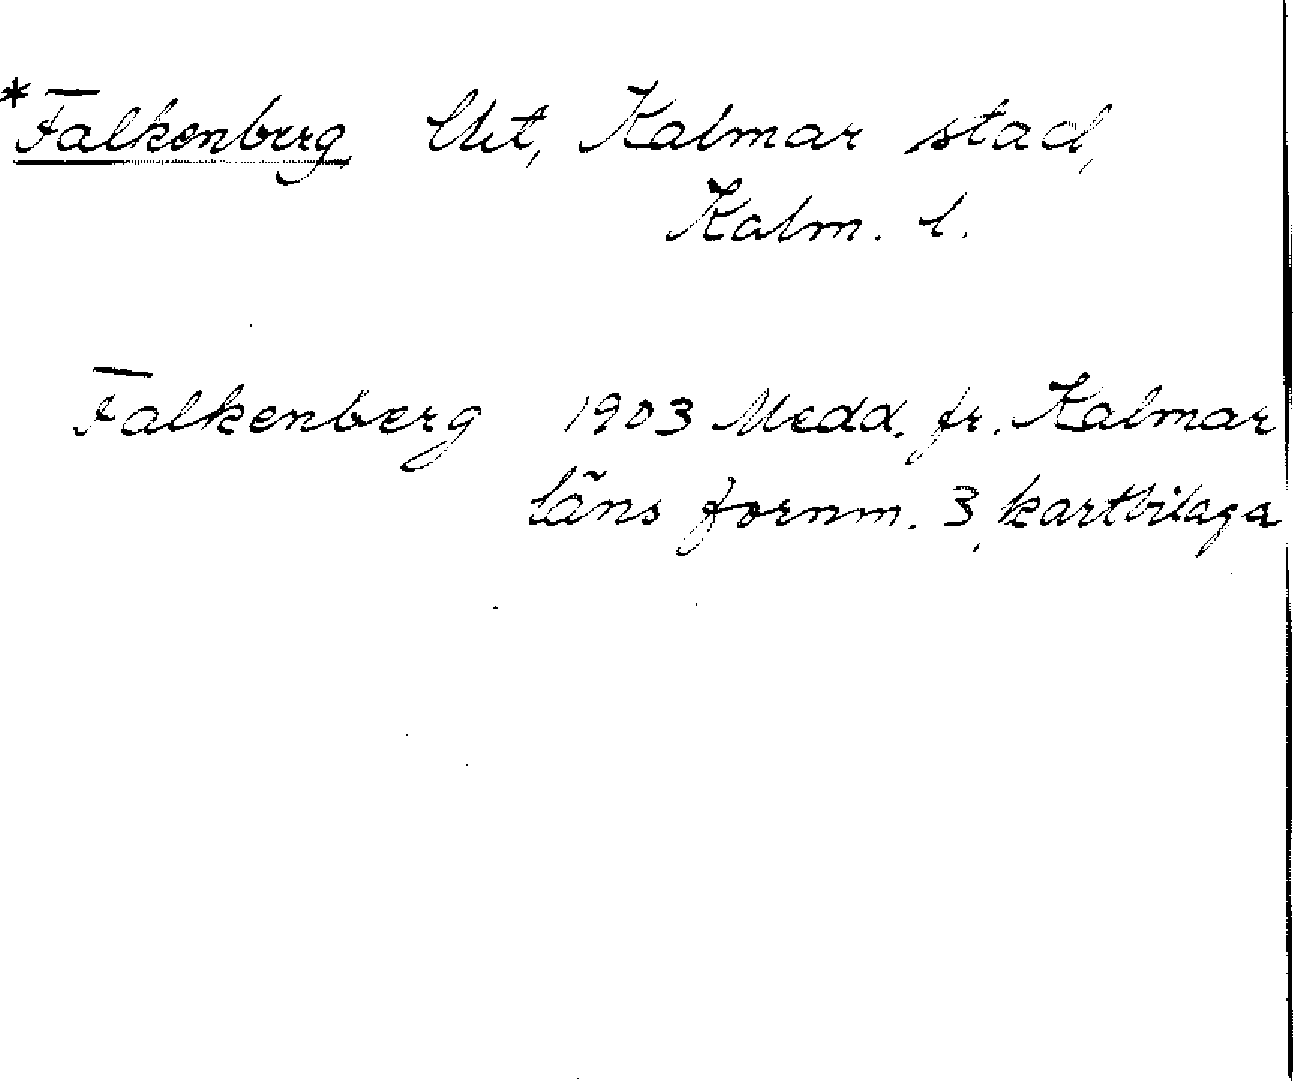 *Falkenberg Utet, Kalmar stad,
Kalm. l.
Falkenberg 1903 Medd. fr. Kalmar
läns fornm. 3, kartbilaga